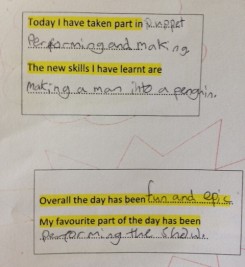 Today I have taken part in Puppet
Performing and making
The new skills I have learnt are
Making a man into a penguin.
Overall the day has been fun and epic
My favourite part of the day has been
Performing the show.